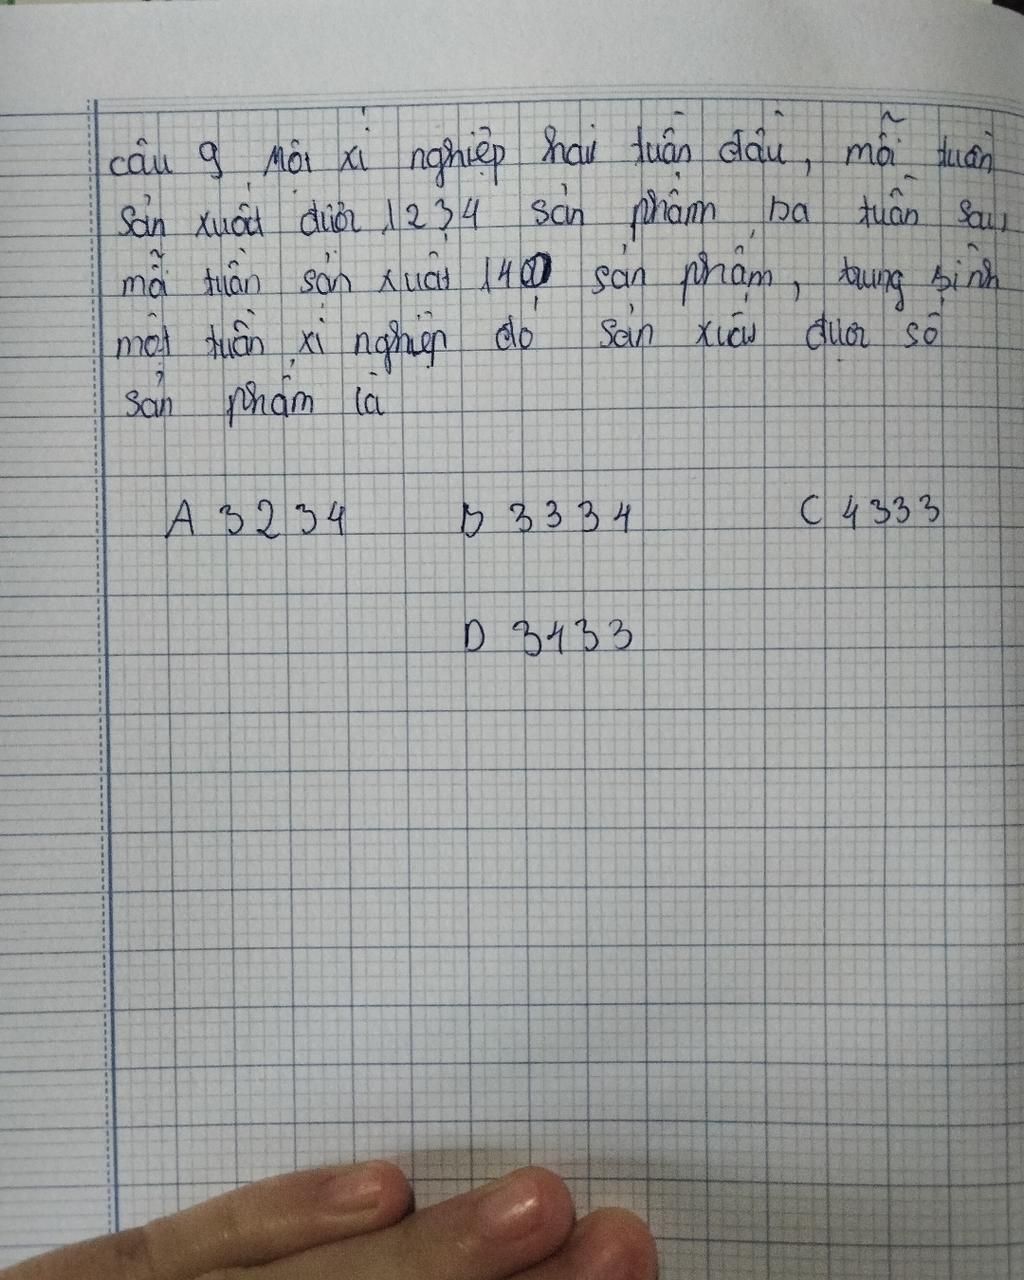 câu 9 Một xí nghiệp hai tuần đầu, mỗi tuần
sản xuất được 1234 sản phẩm ba tuần sau,
mỗi tuần sản xuất 140 sản phẩm, trung bình
một tuần xí nghiệp đó sản xuất được số
sản phẩm là
A 3234 B 3334 C 4333
D 3433